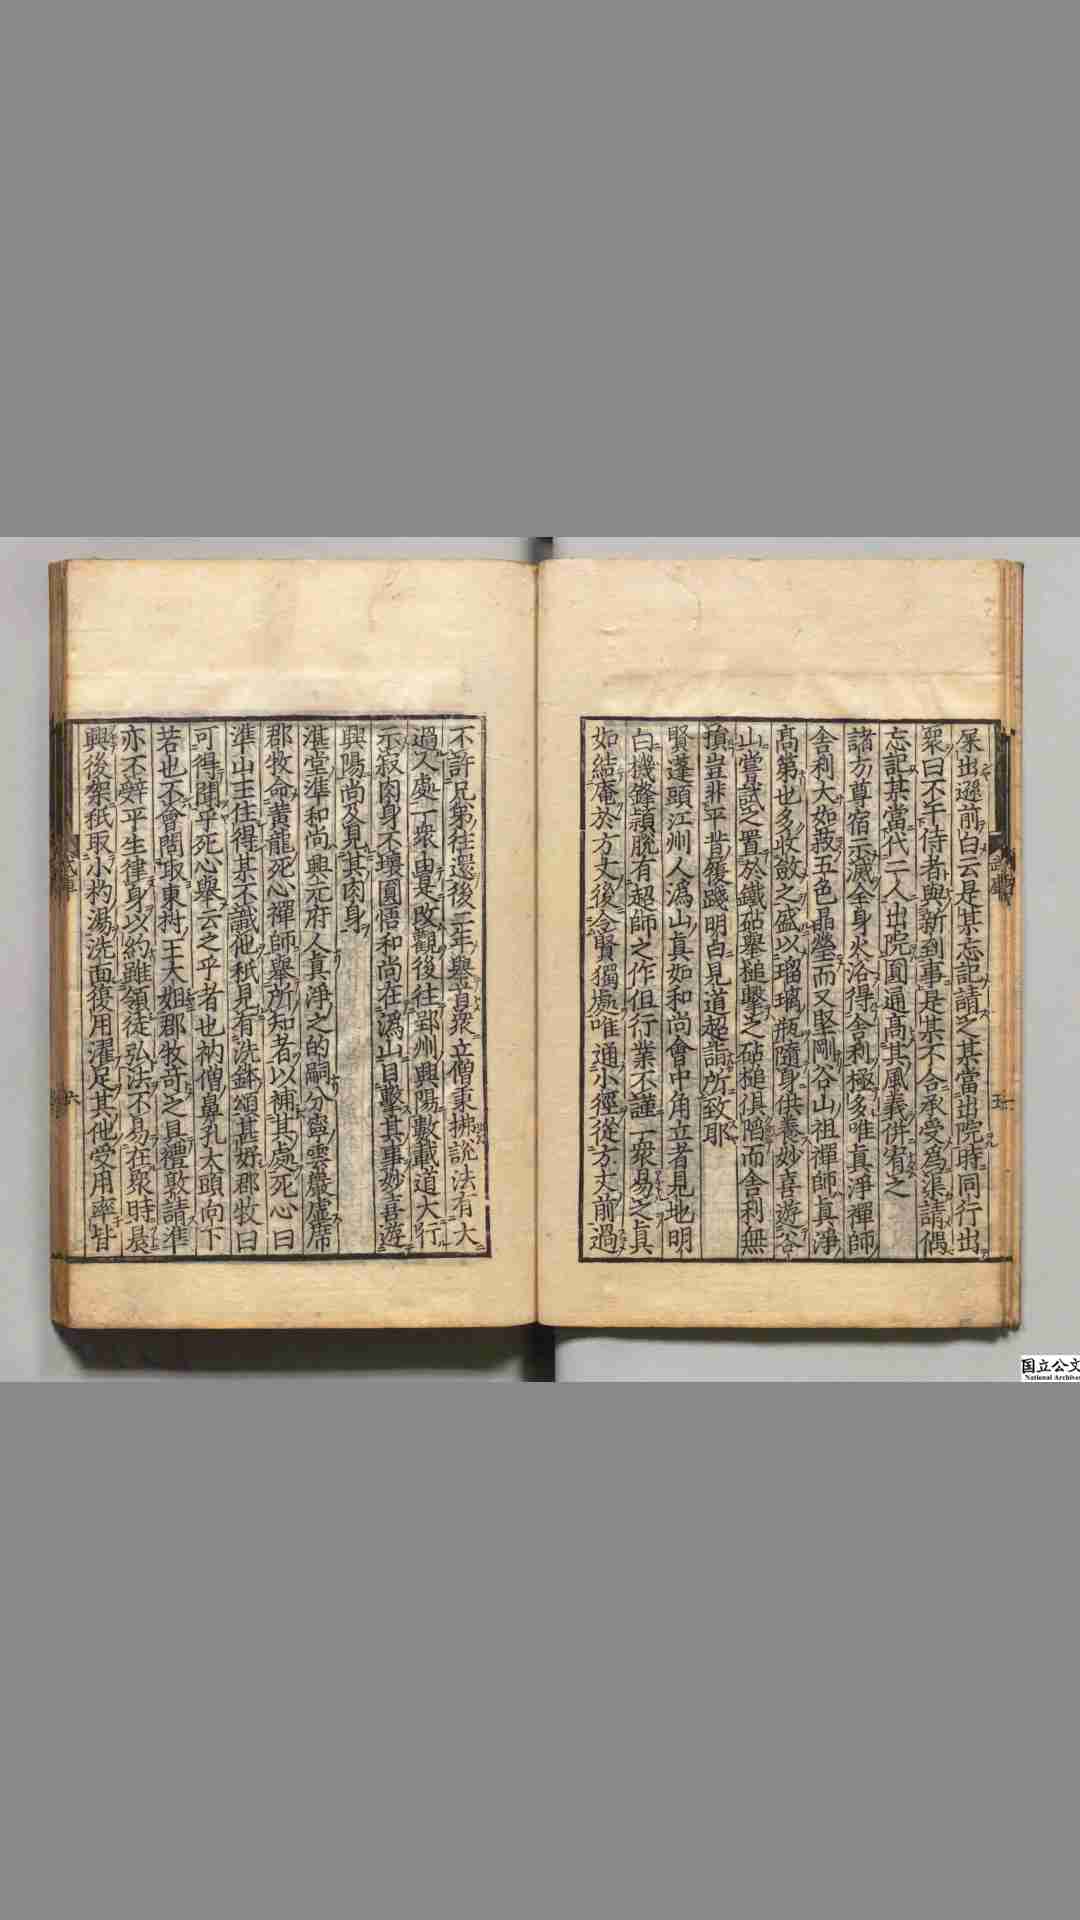 杲出遜前白云是某忘記請之某當出院時同行出
衆曰不干侍者與新到事是某不合承受爲渠請偶
忘記某當代二人出院圓通高其風義併宥之
諸方尊宿示滅全身火浴得舍利極多唯真淨禪師
舍利大如菽五色晶瑩而又堅剛谷山祖禪師真淨
高第也多收斂之盛以瑠璃瓶隨身供養妙喜遊谷
山嘗試之置於鐵砧舉槌擊之砧槌俱陷而舍利無
損豈非平昔履踐明白見道超詣所致耶
賢蓬頭江州人潙山真如和尚會中角立者見地明
白機鋒頴脫有超師之作但行業不謹一衆易之真
如結庵於方丈後令賢獨處唯通小徑從方丈前過
不許兄弟往還後二年舉首衆立僧秉拂說法有大
過人處一衆由是改觀後往郢州興陽數載道大行
示寂肉身不壞圓悟和尚在潙山目擊其事妙喜遊
興陽尚及見其肉身
湛堂準和尚興元府人真淨之的嗣分寧雲巖虛席
郡牧命黄龍死心禪師舉所知者以補其處死心曰
準山主住得某不識他秖見有洗鉢頌甚好郡牧曰
可得聞乎死心舉云之乎者也衲僧鼻孔大頭向下
若也不會問取東村王大姐郡牧奇之具禮敦請準
亦不辭平生律身以約雖領徒弘法不易在衆時晨
興後架秖取小杓湯洗面復用濯足其他受用率皆
五
六
国立公文
National Archives